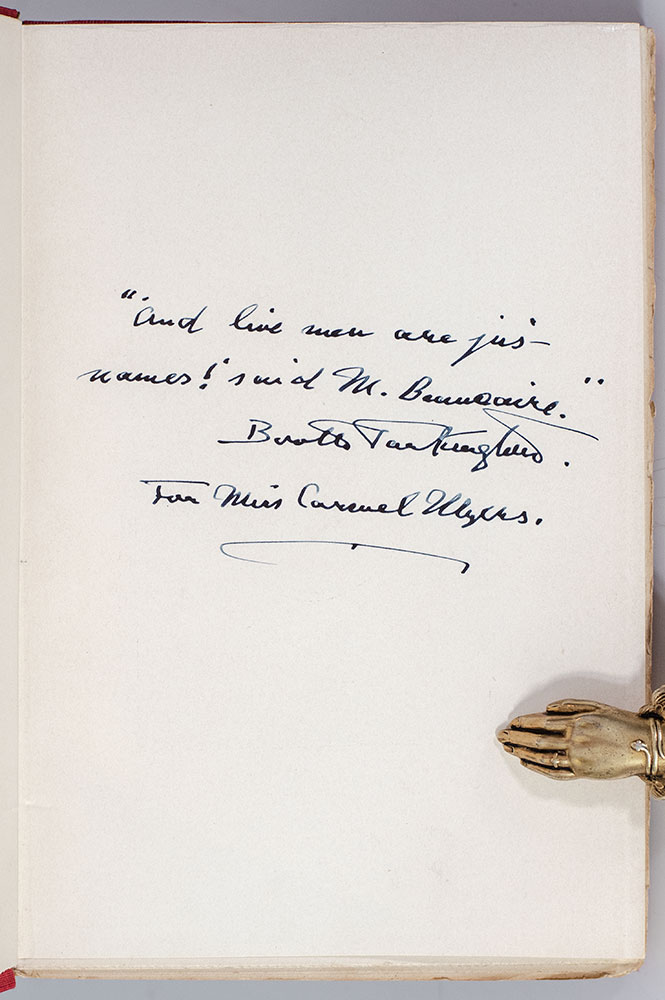 "'And live men are jus'
names!' said M. Beaucaire."
Booth Tarkington.
For Miss Carmel Myers.